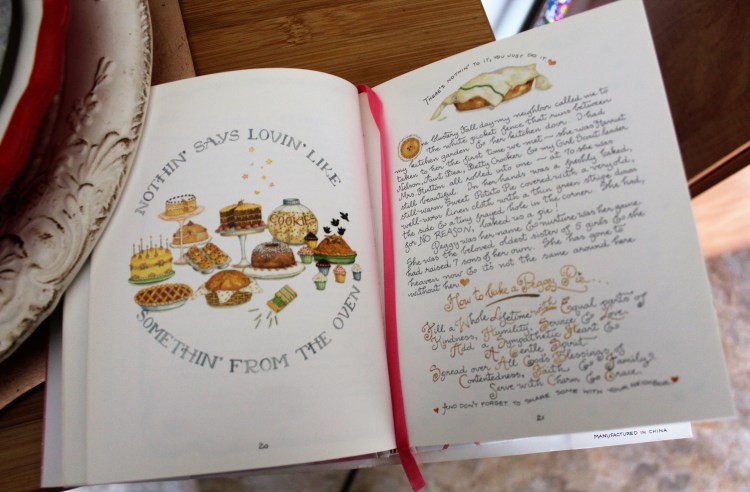 NOTHIN' SAYS LOVIN' LIKE
COOKIE
SOMETHIN' FROM THE OVEN
20
THERE'S NOTHIN' TO IT, YOU JUST DO IT
One blustery Fall day my neighbor called me to
the white picket fence that runs between
my kitchen garden & her kitchen door. I had
taken to her the first time we met — she was Harriet
Nelson, Aunt Bea, Betty Crocker & my Girl Scout leader
Mrs. Hutton all rolled into one — at 70 she was
still beautiful. In her hands was a freshly baked,
still-warm Sweet Potato Pie covered with a very old,
well-worn linen cloth with a thin green stripe down
the side & a tiny frayed hole in the corner. She had,
for NO REASON, baked us a pie!
Peggy was her name & nurture was her game.
She was the beloved oldest sister of 5 girls & she
had raised 7 sons of her own. She has gone to
heaven now & it's not the same around here
without her.
How to Bake a Peggy Pie...
Fill a Whole Lifetime with Equal parts of
Kindness, Humility, Service & Love.
Add a Sympathetic Heart &
A Gentle Spirit.
Spread over All God's Blessings of
Contentedness, Faith & Family.
Serve with Charm & Grace.
AND DON'T FORGET TO SHARE SOME WITH YOUR NEIGHBOR.
21
MANUFACTURED IN CHINA